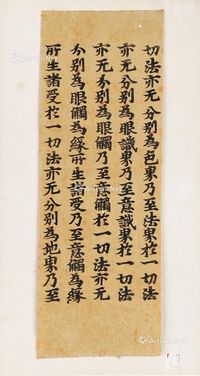 切法亦无分别為色界乃至法界於一切法
亦无分别為眼識界乃至意識界於一切法
亦无分别為眼觸乃至意觸於一切法亦无
分别為眼觸為緣所生諸受乃至意觸為緣
所生諸受於一切法亦无分别為地界乃至